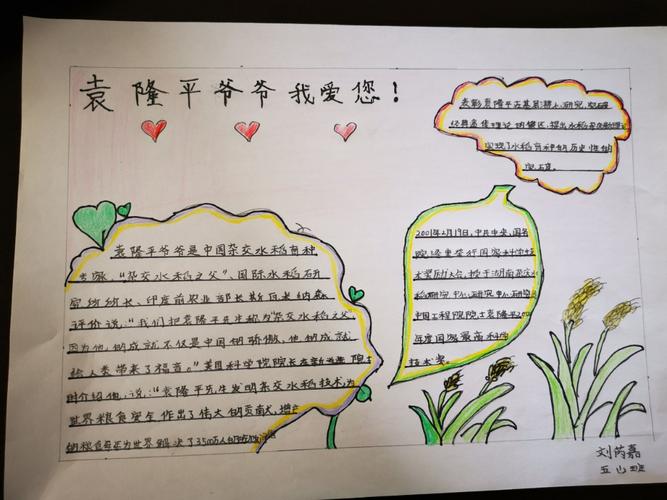 袁隆平爷爷我爱您！
表彰袁隆平在基础理论研究,突破
经典遗传理论的禁区,提出水稻杂交新理论
实现了水稻育种的历史性的
突破。
袁隆平爷爷是中国杂交水稻育种
专家,“杂交水稻之父”,国际水稻研
究所所长、印度前农业部长斯瓦米纳森
评价说:“我们把袁隆平先生称为杂交水稻之父,
因为他的成就不仅是中国的骄傲,他的成就
给人类带来了福音。”美国科学院院长在
时介绍他,说:“袁隆平先生发明杂交水稻技术,为
世界粮食安全作出了伟大的贡献,增产
的粮食每年为世界解决了3500万人的
2001年2月19日,中共中央、国务
院隆重举行国家科学技
术奖励大会,授予湖南杂交水
稻研究中心
中国工程院院士袁隆平200
年度国家最高科学
技术奖。
刘芮嘉
五（4）班